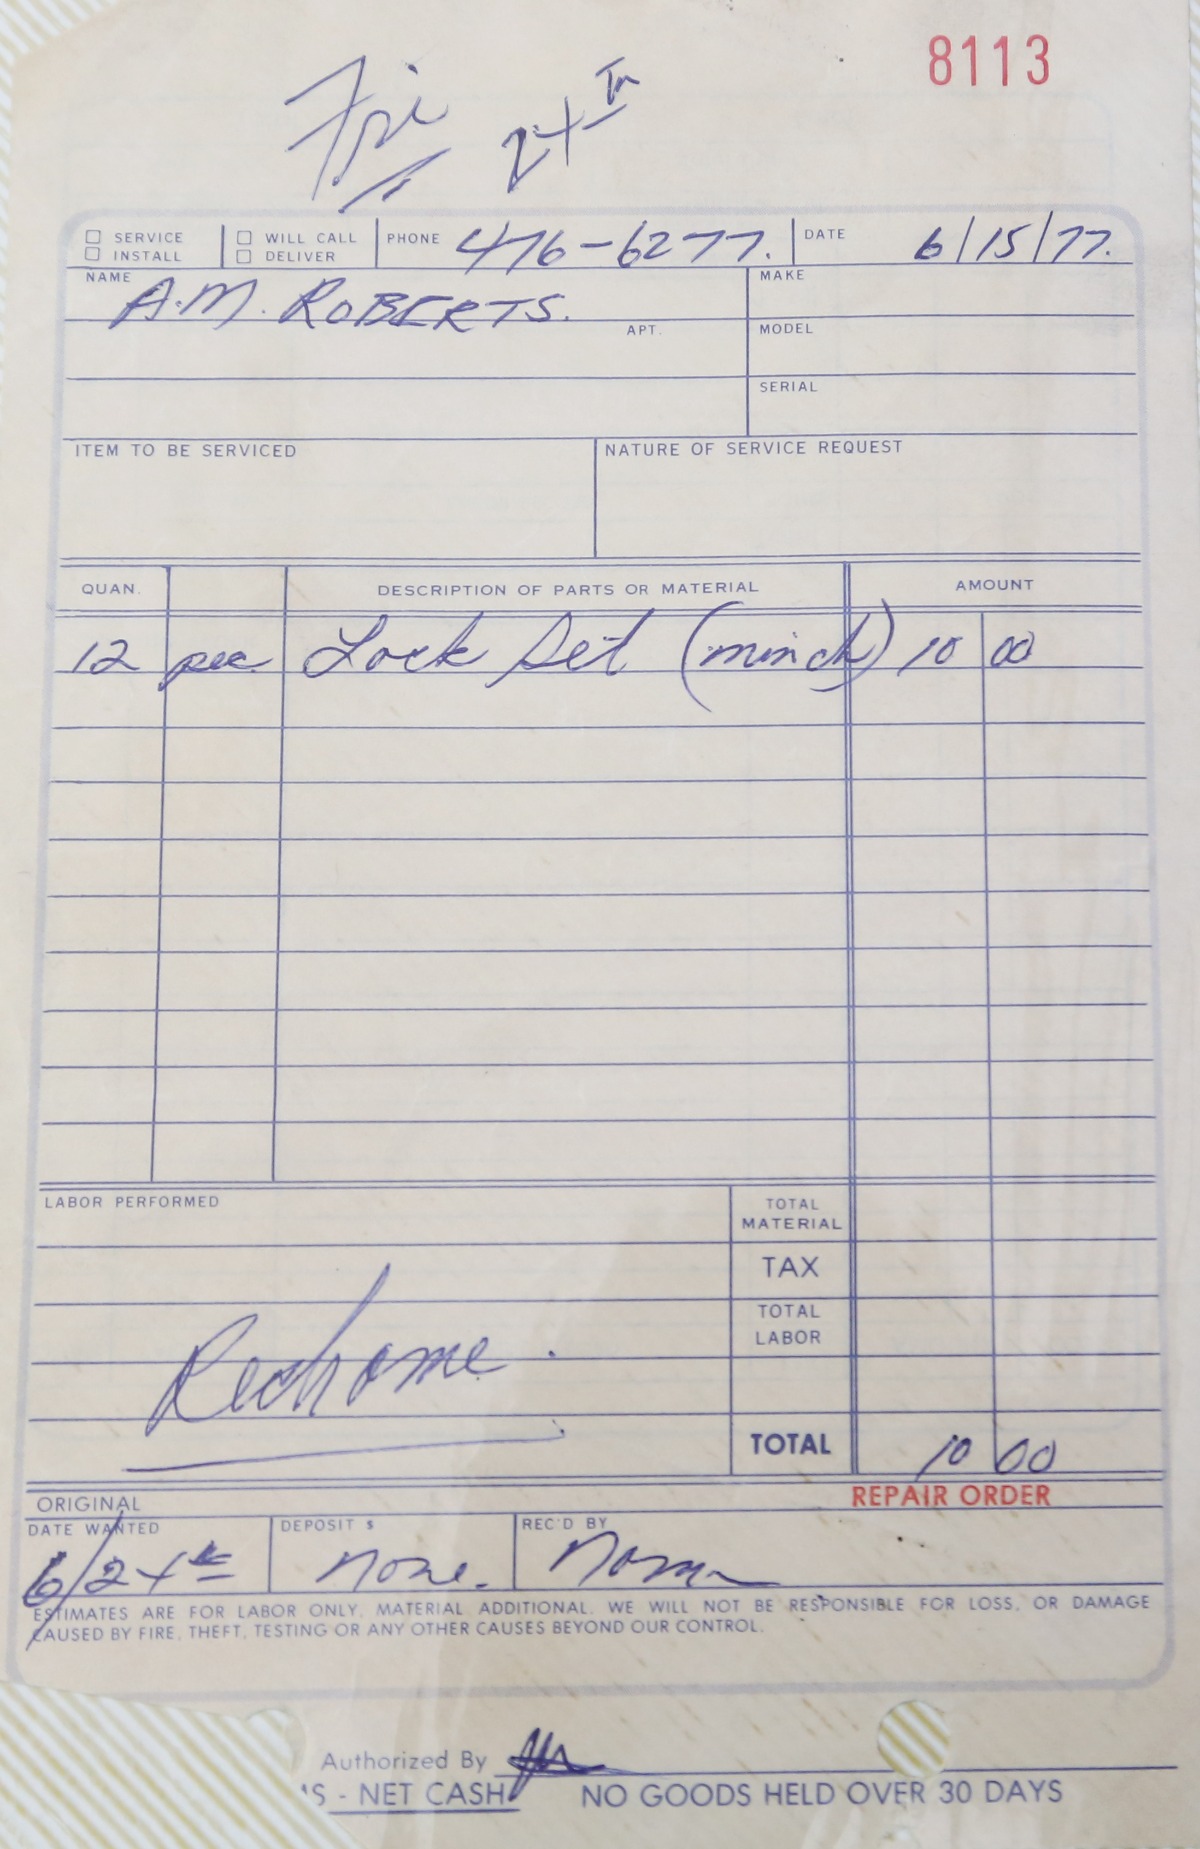 8113
Fri 24th
SERVICE WILL CALL PHONE 476-6277. DATE 6/15/77.
INSTALL DELIVER
NAME A.M. ROBERTS. MAKE
APT. MODEL
SERIAL
ITEM TO BE SERVICED NATURE OF SERVICE REQUEST
QUAN. DESCRIPTION OF PARTS OR MATERIAL AMOUNT
12 pcc Lock Set ( ) 10 00
LABOR PERFORMED TOTAL
MATERIAL
TAX
TOTAL
LABOR
Rechrome.
TOTAL 10 00
ORIGINAL REPAIR ORDER
DATE WANTED DEPOSIT $ REC'D BY
6/24th none. Norm
ESTIMATES ARE FOR LABOR ONLY, MATERIAL ADDITIONAL. WE WILL NOT BE RESPONSIBLE FOR LOSS, OR DAMAGE
CAUSED BY FIRE, THEFT, TESTING OR ANY OTHER CAUSES BEYOND OUR CONTROL.
Authorized By
MS - NET CASH NO GOODS HELD OVER 30 DAYS